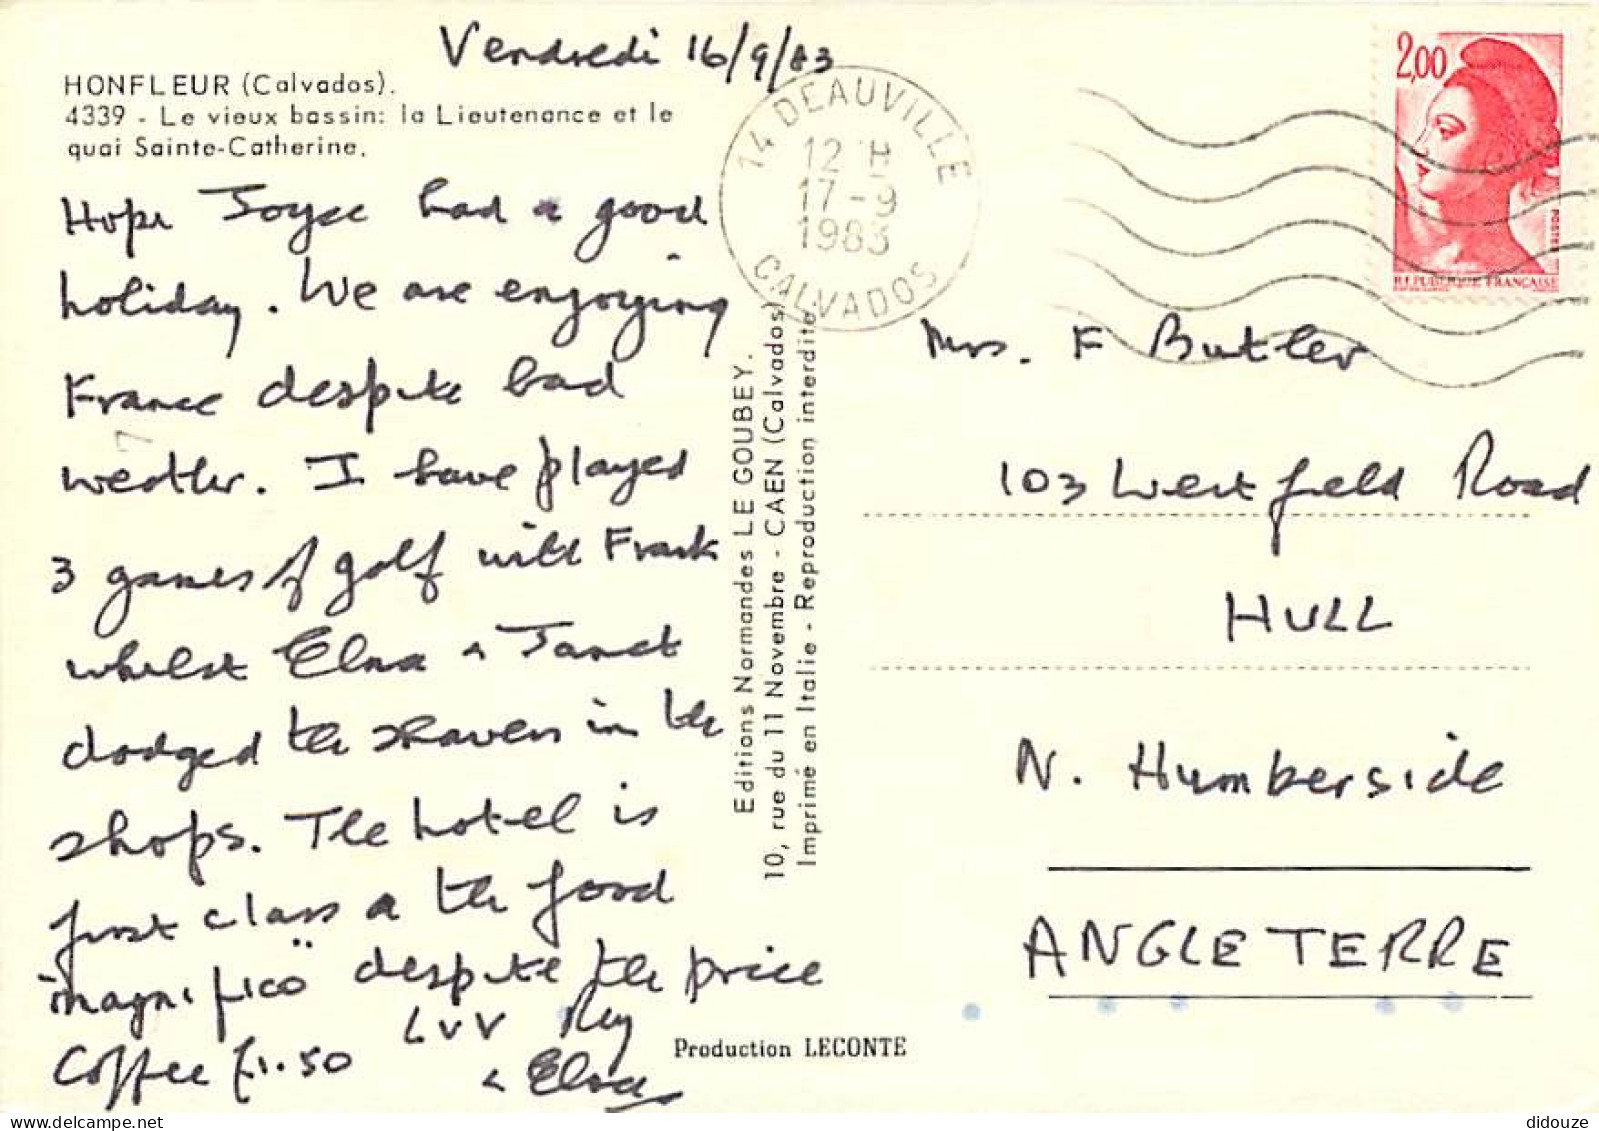 Vendredi 16/9/83
HONFLEUR (Calvados).
4339 - Le vieux bassin: la Lieutenance et le
quai Sainte-Catherine.
Hope Joyce had a good
holiday. We are enjoying
France despite bad
weather. I have played
3 games of golf with Frank
whilst Elna & Janet
dodged the showers in the
shops. The hotel is
first class & the food
"magnifico" despite the price
Coffee £1.50
LVV Ray
& Elna
Editions Normandes LE GOUBEY.
10, rue du 11 Novembre - CAEN (Calvados)
Imprimé en Italie - Reproduction interdite
Production LECONTE
14 DEAUVILLE
12 H
17-9
1983
CALVADOS
2,00
POSTES
REPUBLIQUE FRANÇAISE
Mrs. F Butler
103 Westfield Road
HULL
N. Humberside
ANGLETERRE
didouze